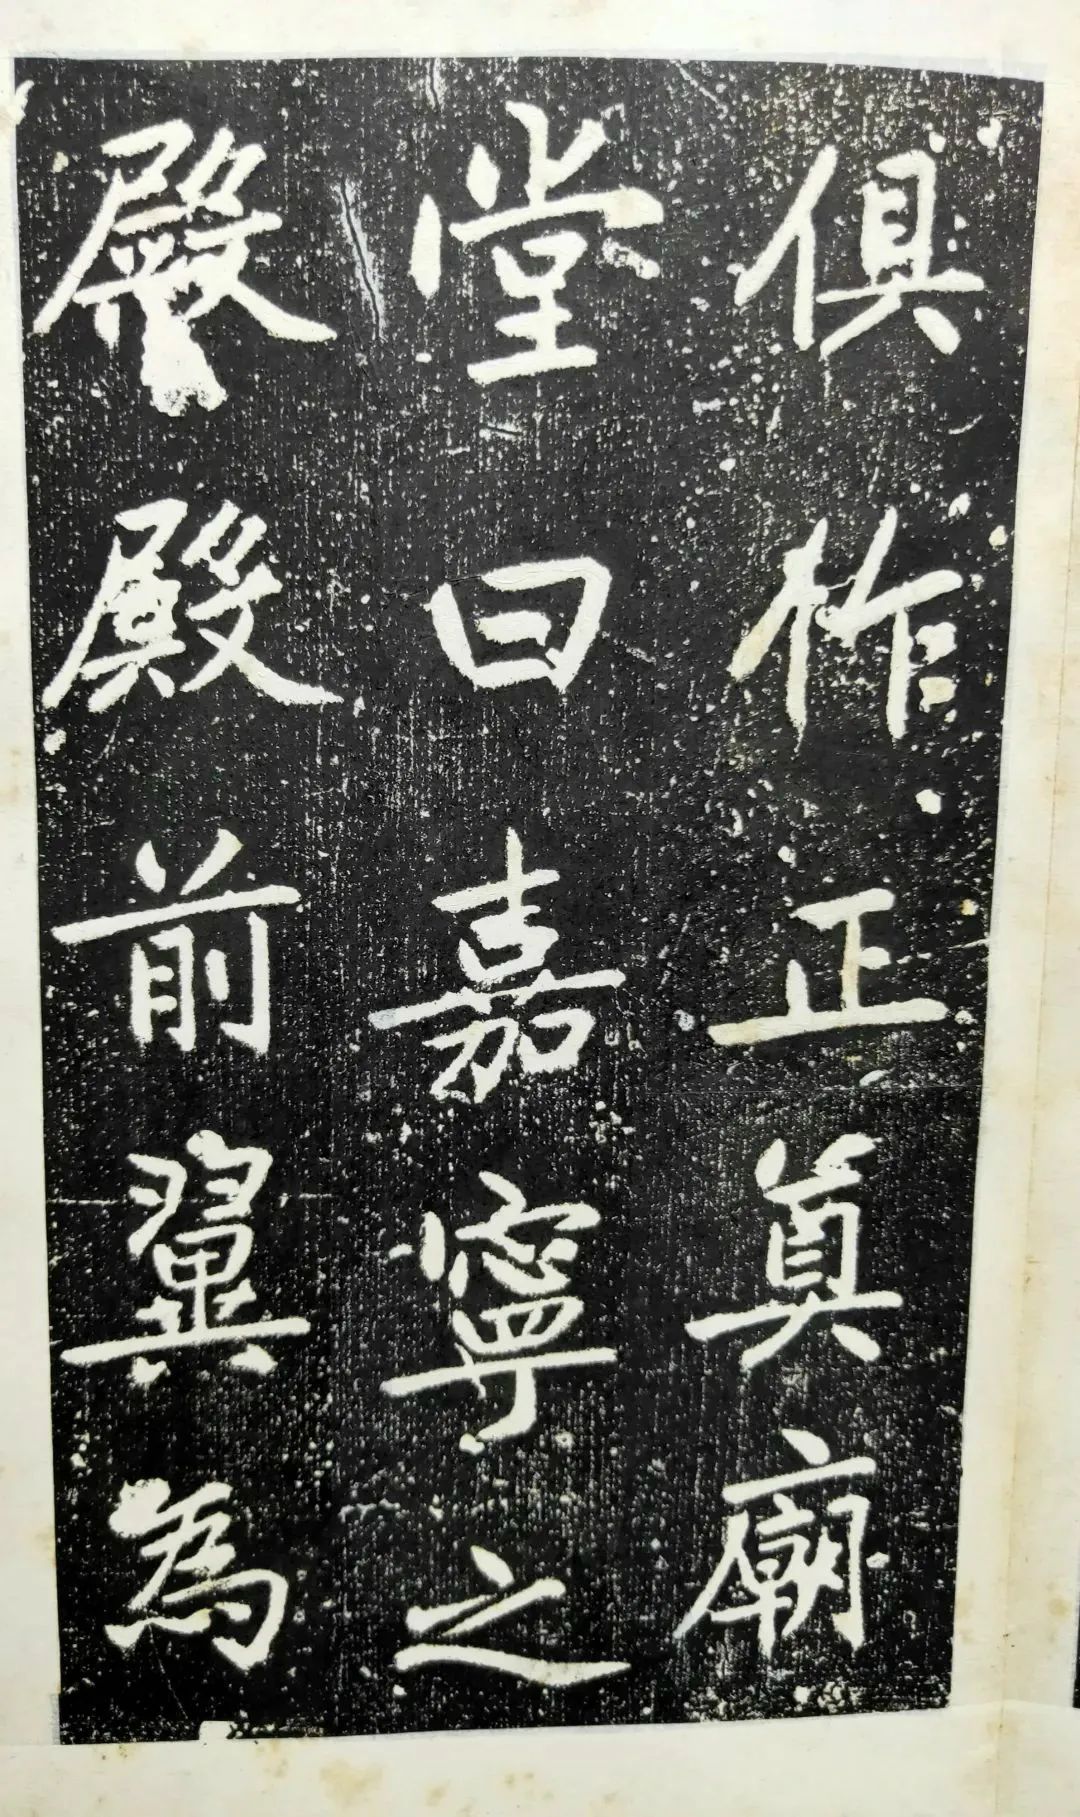 俱作正真廟
堂曰嘉寧之
殿殿前翼為